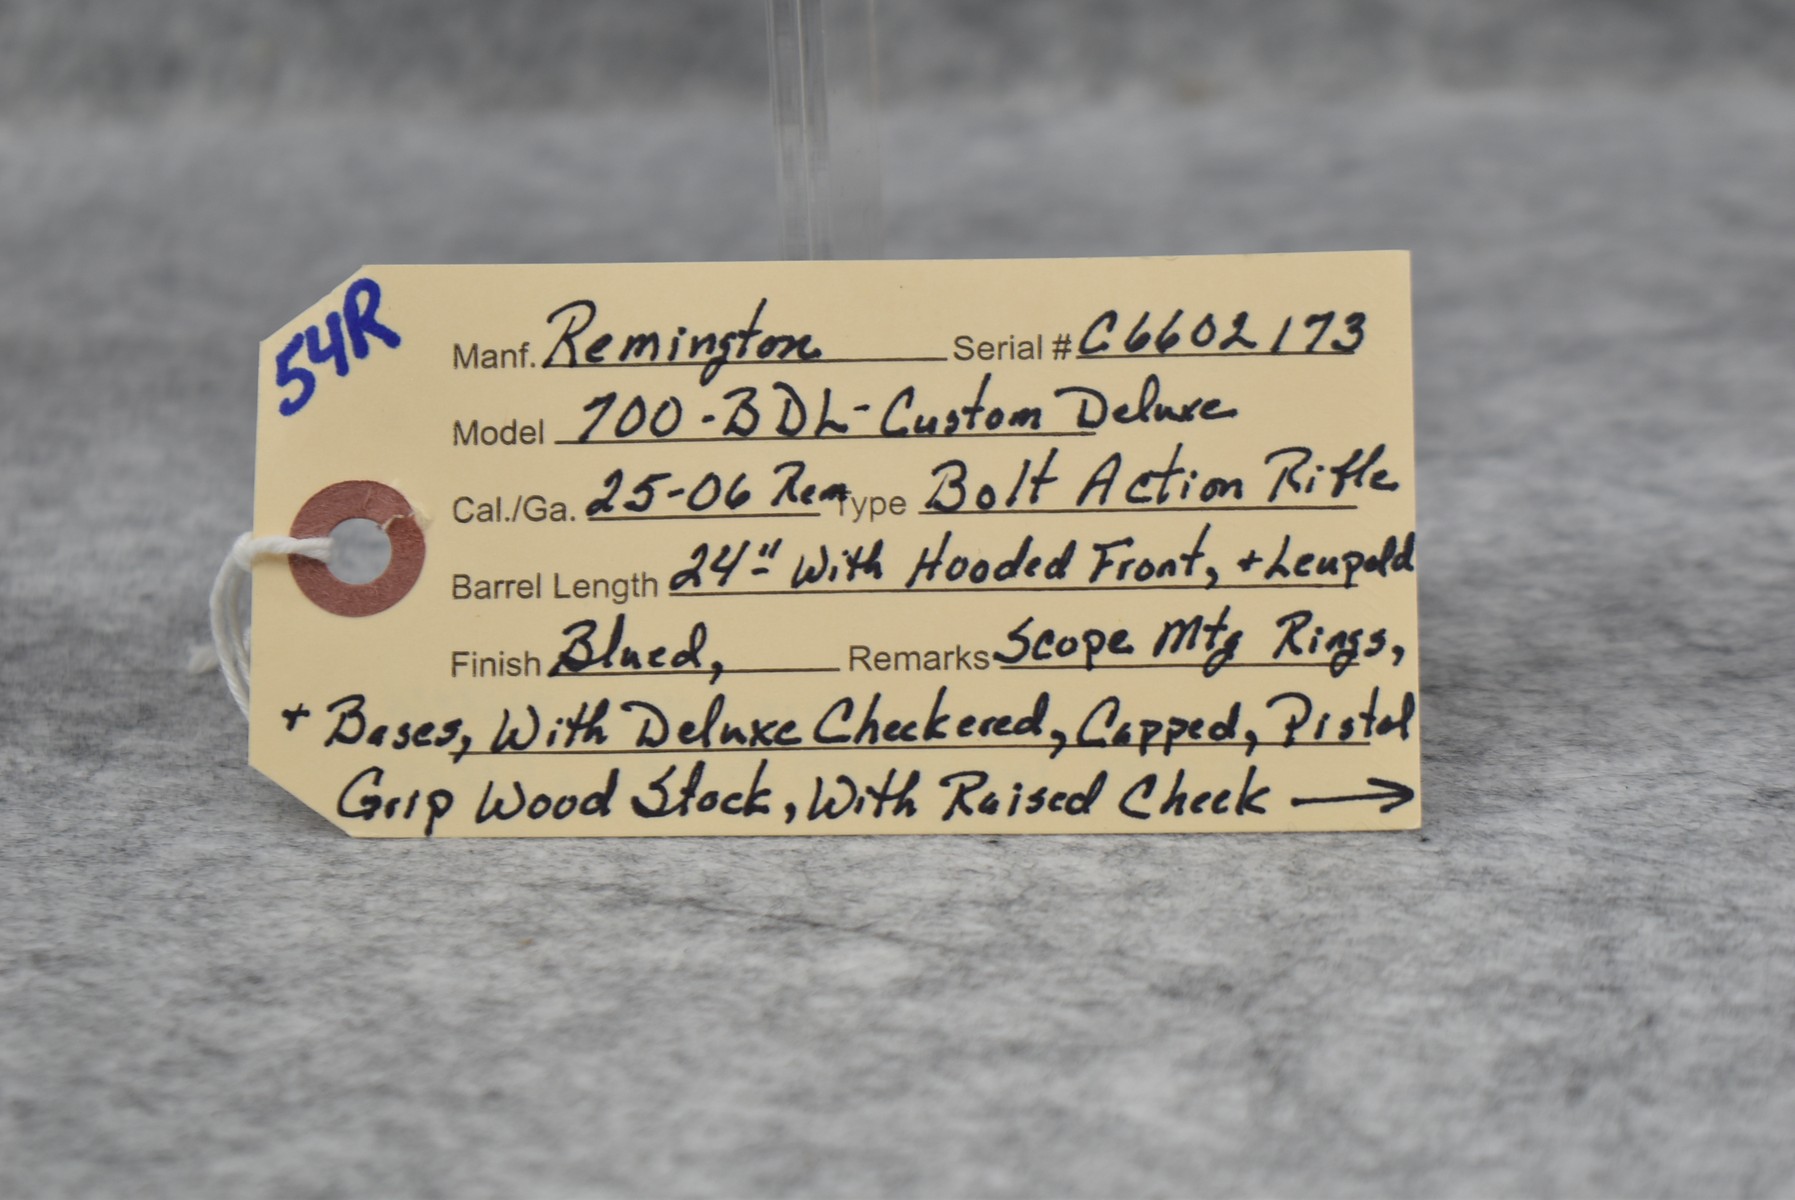 54R
Manf. Remington Serial # C6602173
Model 700-BDL-Custom Deluxe
Cal./Ga. 25-06 Rem Type Bolt Action Rifle
Barrel Length 24" With Hooded Front, + Leupold
Finish Blued, Remarks Scope Mtg Rings,
+ Bases, With Deluxe Checkered, Capped, Pistol
Grip Wood Stock, With Raised Cheek →